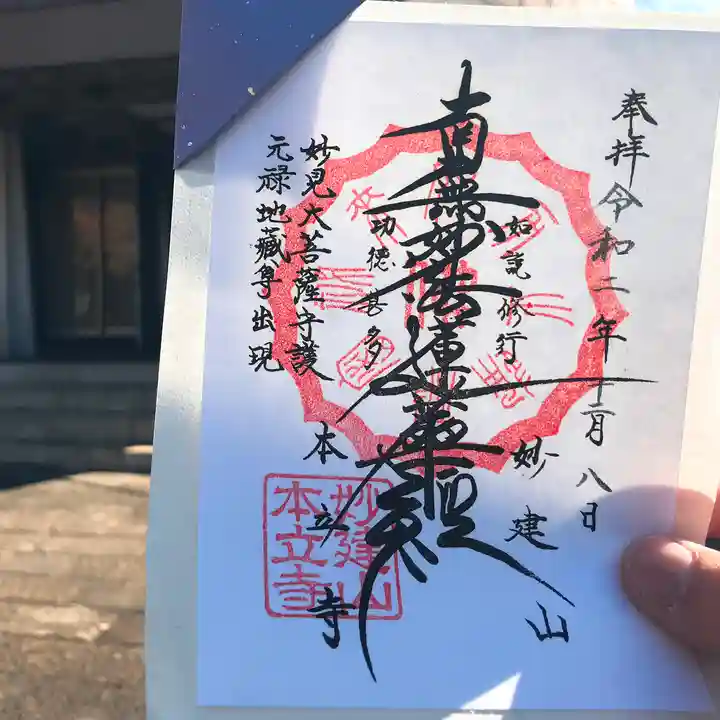 奉拝令和二年十二月八日
妙建山
如説修行
南無妙法蓮華経
功徳甚多
本立寺
妙見大菩薩守護
元禄地蔵尊出現
妙建山
本立寺